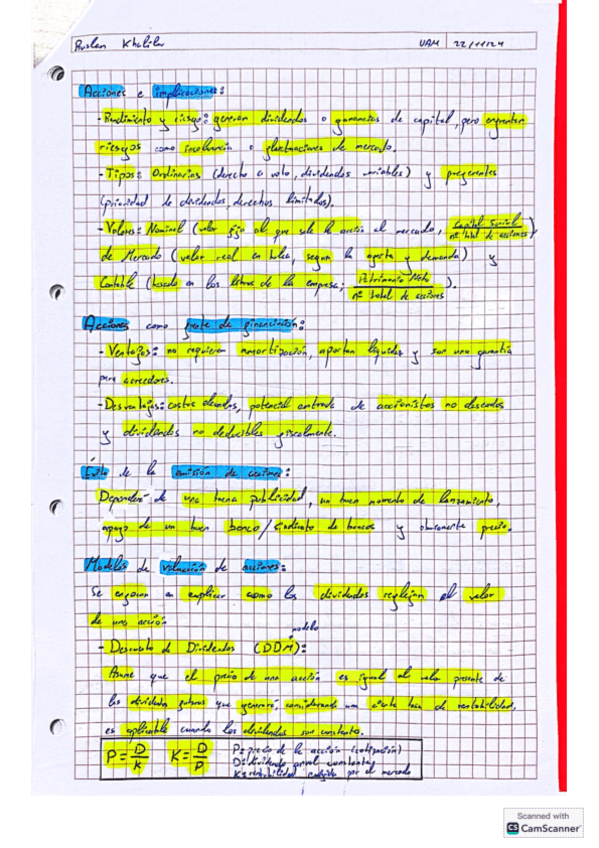 Ruslan Khalilov UAM 22/11/24
Acciones e implicaciones:
- Rendimiento y riesgo: generan dividendos o ganancias de capital, pero enfrentan
riesgos como insolvencia o fluctuaciones de mercado.
- Tipos: Ordinarias (derecho a voto, dividendos variables) y preferentes
(prioridad de dividendos, derechos limitados).
- Valores: Nominal (valor fijo al que sale la acción al mercado, Capital Social / nº total de acciones)
de Mercado (valor real en bolsa, según la oferta y demanda) y
Contable (basado en los libros de la empresa; Patrimonio Neto / nº total de acciones).
Acciones como fuente de financiación:
- Ventajas: no requieren amortización, aportan liquidez y son una garantía
para acreedores.
- Desventajas: costes elevados, potencial entrada de accionistas no deseados
y dividendos no deducibles fiscalmente.
Éxito de la emisión de acciones:
Dependerá de una buena publicidad, un buen momento de lanzamiento,
apoyo de un buen banco/sindicato de bancos y obviamente precio.
Modelos de valuación de acciones:
Se enfocan en explicar como los dividendos reflejan el valor
de una acción
modelo
- Descuento de Dividendos (DDM):
Asume que el precio de una acción es igual al valor presente de
los dividendos futuros que generará, considerando una cierta tasa de rentabilidad,
es aplicable cuando los dividendos son constantes.
P = D/K K = D/P P = precio de la acción (cotización)
D = dividendo anual constante
K = rentabilidad exigida por el mercado
Scanned with
CS CamScanner